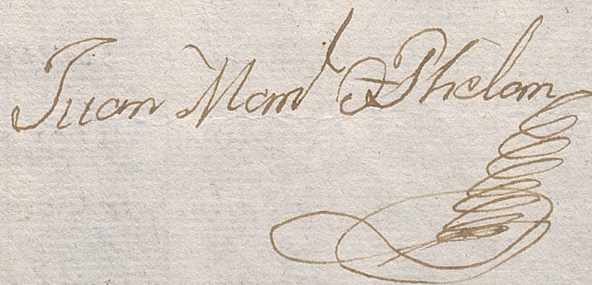 Juan Man^l Phelan